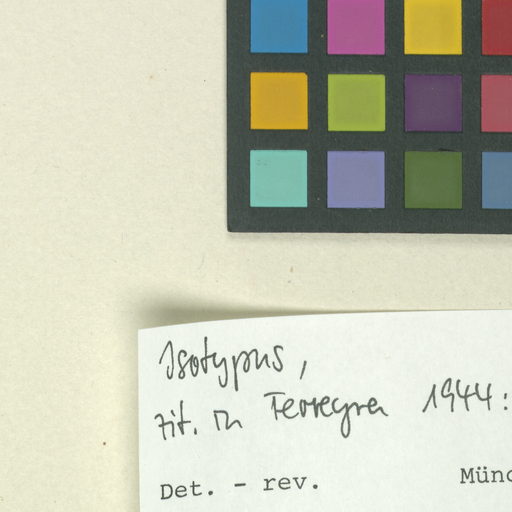 Isotypus,
zit. in Ferreyra 1944:
Det. - rev. Münc